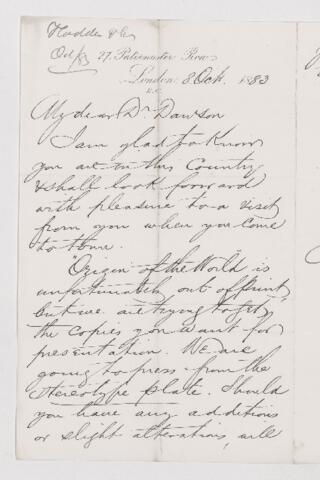 Hodder & Co
Oct/83
27, Paternoster Row,
London 8 Oct. 1883
E.C.
My dear Dr. Dawson
I am glad to know
you are in this Country
& shall look forward
with pleasure to a visit
from you when you come
to town.
"Origin of the World" is
unfortunately "out of print"
but we are trying to get
the copies you want for
presentation. We are
going to press from the
stereotype plate. Should
you have any additions
or slight alterations, will